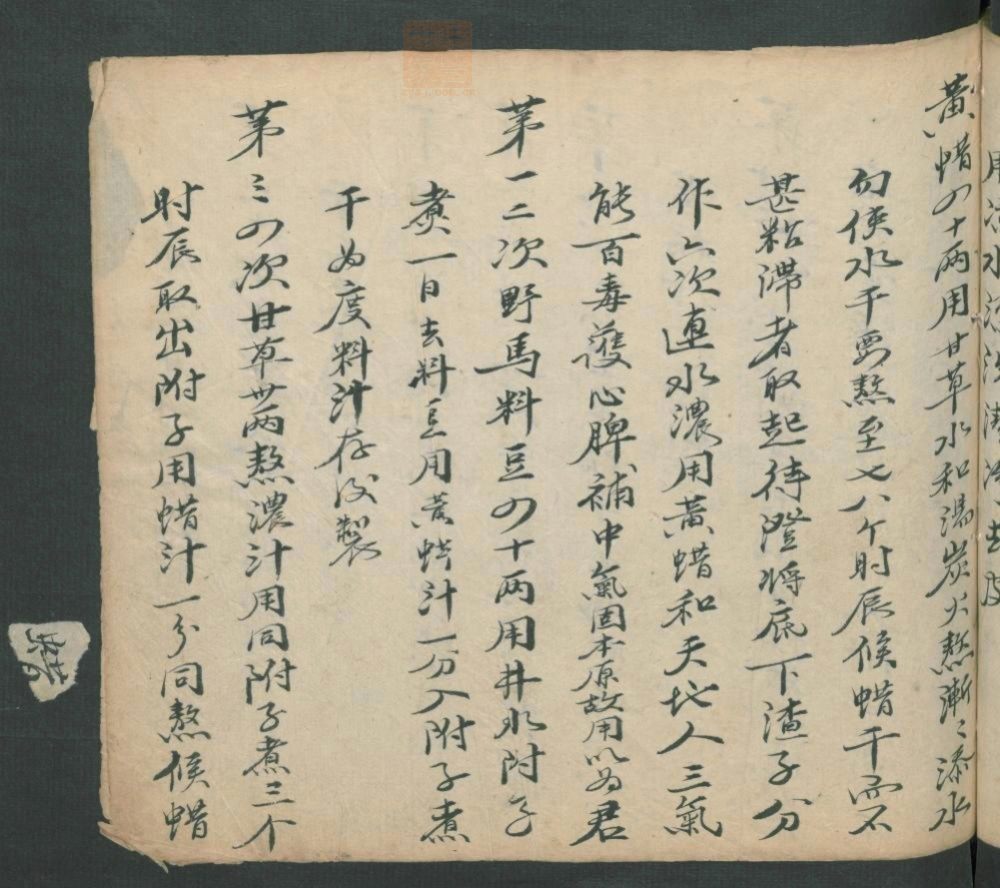 黃蜡四十两用甘草水和湯炭火熬漸〻添水
勿侯水干要熬至七八个時辰候蜡干而不
甚粘滞者取起待澄将底下渣子分
作六次連水濃用黃蜡和天地人三氣
能百毒護心脾補中氣固本原故用以為君
苐一二次野馬料豆四十两用井水附子
煮一日去料豆用黃蜡汁一分入附子煮
干為度料汁存後製
苐三四次甘草卅两熬濃汁用同附子煮三个
时辰取出附子用蜡汁一分同熬候蜡